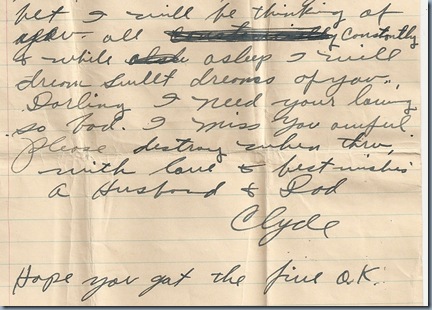 bet I will be thinking of
you all constantly
& while asleep I will
dream swllt dreams of you.
Darling I need your loving
so bad. I miss you awful
Please destroy when thru,
with love & best wishes
a Husband & Dad
Clyde
Hope you got the fire O.K.